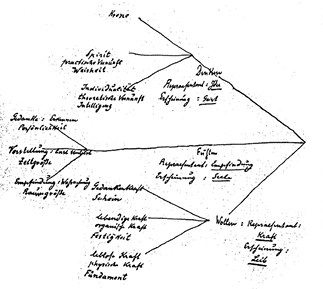 Krone
Spirit
practische Vernunft
Weisheit
Denken
Individualität
theoretische Vernunft
Intelligenz
Repraesentant: Idee
Erscheinung: Geist
Gedanke:
Persönlichkeit
Vorstellung:
Zeitgröße
Fühlen
Repraesentant: Empfindung
Erscheinung: Seele
Empfindung:
Raumgröße
Gedankenkraft
Schein
lebendige Kraft
organische Kraft
Festigkeit
Wollen: Repraesentant:
Kraft
Erscheinung:
Leib
leblose Kraft
physische Kraft
Fundament